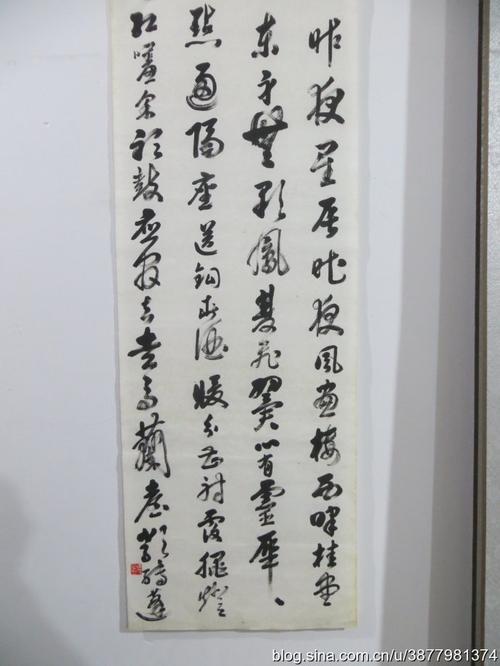 昨夜星辰昨夜風畫樓西畔桂堂
東身無彩鳳雙飛翼心有靈犀一
點通隔座送鈎春酒暖分曹射覆蠟燈
紅嗟余聽鼓應官去走馬蘭臺類轉蓬
blog.sina.com.cn/u/3877981374